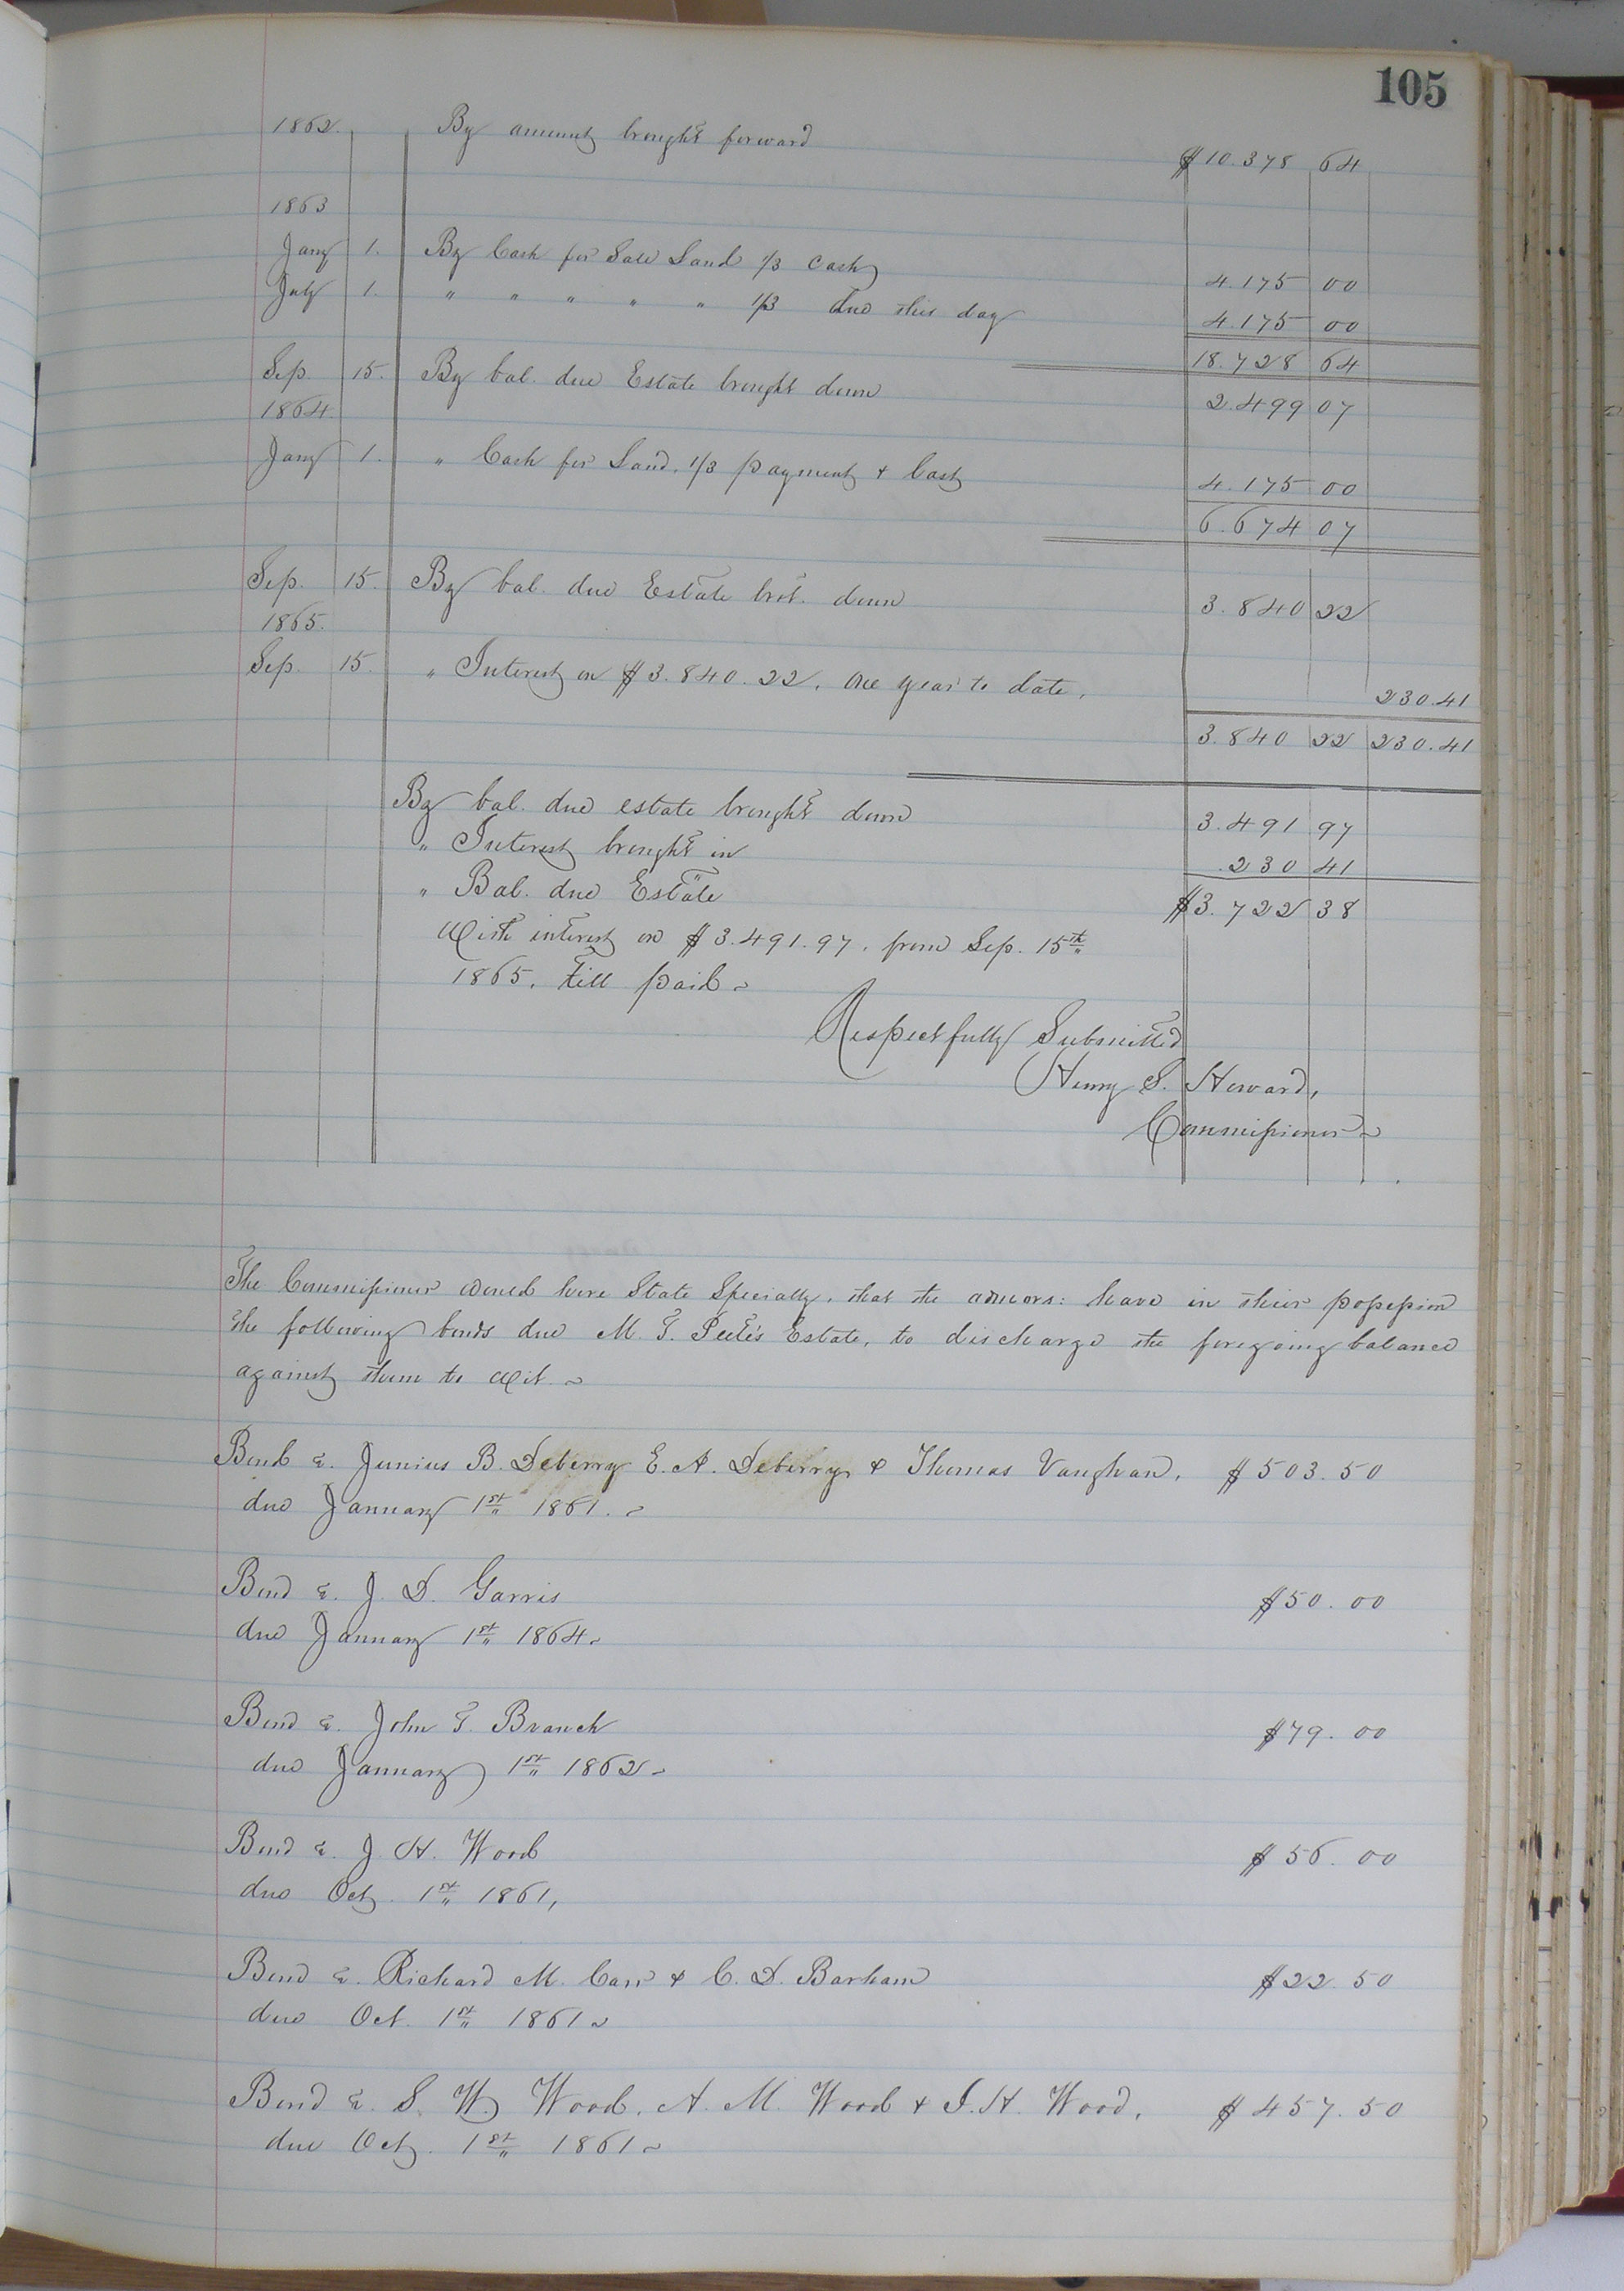 105
1862. By amount brought forward $10.378 64
1863
Jany 1. By Cash for Sale Land 1/3 Cash 4.175 00
July 1. " " " " " 1/3 due this day 4.175 00
18.728 64
Sep. 15. By bal. due Estate brought down 2.499 07
1864
Jany 1. " Cash for Land. 1/3 payment & last 4.175 00
6.674 07
Sep. 15. By bal. due Estate brot. down 3.840 22
1865.
Sep. 15. " Interest on $3.840.22. one year to date. 230.41
3.840 22 230.41
By bal. due estate brought down 3.491 97
" Interest brought in 230 41
" Bal. due Estate $3.722 38
With interest on $3.491.97. from Sep. 15th
1865. till paid
Respectfully Submitted
Henry S. Howard,
Commissioner
The Commissioner would here State Specially. that the admors: have in their possession
the following bonds due M. T. Peete's Estate, to discharge the foregoing balance
against them to wit.
Bond &. Junius B. Deberry E. A. Deberry & Thomas Vaughan. $503.50
due January 1st 1861.
Bond &. J. D. Garris $50.00
due January 1st 1864.
Bond &. John T. Branch $79.00
due January 1st 1862
Bond &. J. H. Wood $56.00
due Oct. 1st 1861,
Bond &. Richard M. Carr & C. D. Barham $22.50
due Oct. 1st 1861
Bond &. S. W. Wood, A. M. Wood & J. H. Wood. $457.50
due Oct. 1st 1861